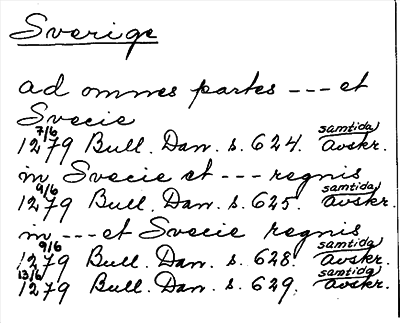 Sverige
ad omnes partes --- et
Svecie
7/6
1279 Bull. Dan. s. 624. samtida avskr.
in Svecie et --- regnis
9/6
1279 Bull. Dan. s. 625. samtida avskr.
in --- et Svecie regnis
9/6
1279 Bull. Dan. s. 628. samtida avskr.
13/6
1279 Bull. Dan. s. 629. samtida avskr.